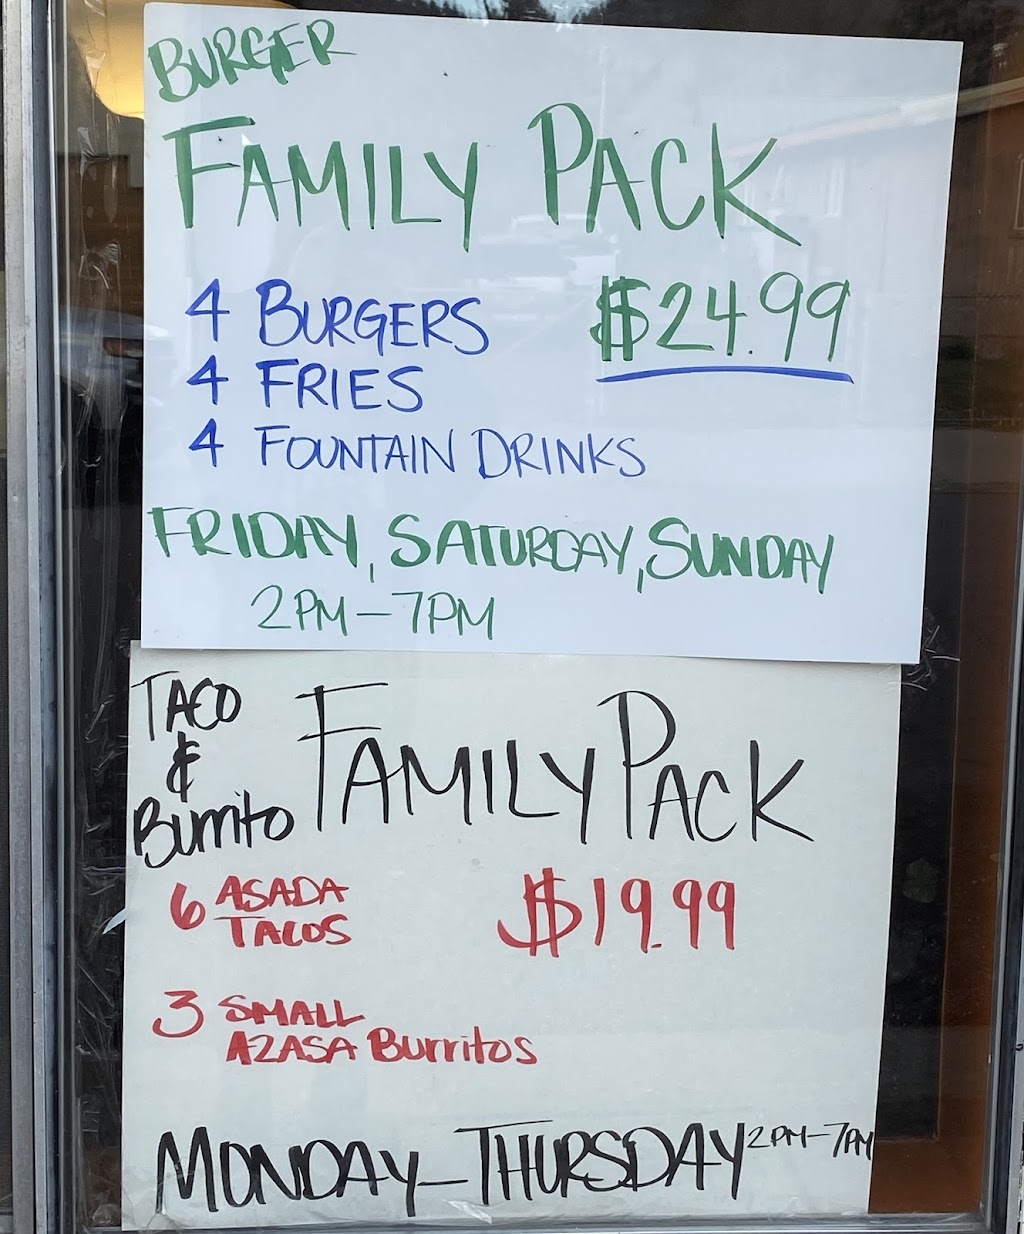 BURGER
FAMILY PACK
4 BURGERS $24.99
4 FRIES
4 FOUNTAIN DRINKS
FRIDAY, SATURDAY, SUNDAY
2PM-7PM
TACO
&
Burrito
FAMILY PACK
6 ASADA
TACOS
$19.99
3 SMALL
AZASA Burritos
MONDAY-THURSDAY 2PM-7PM